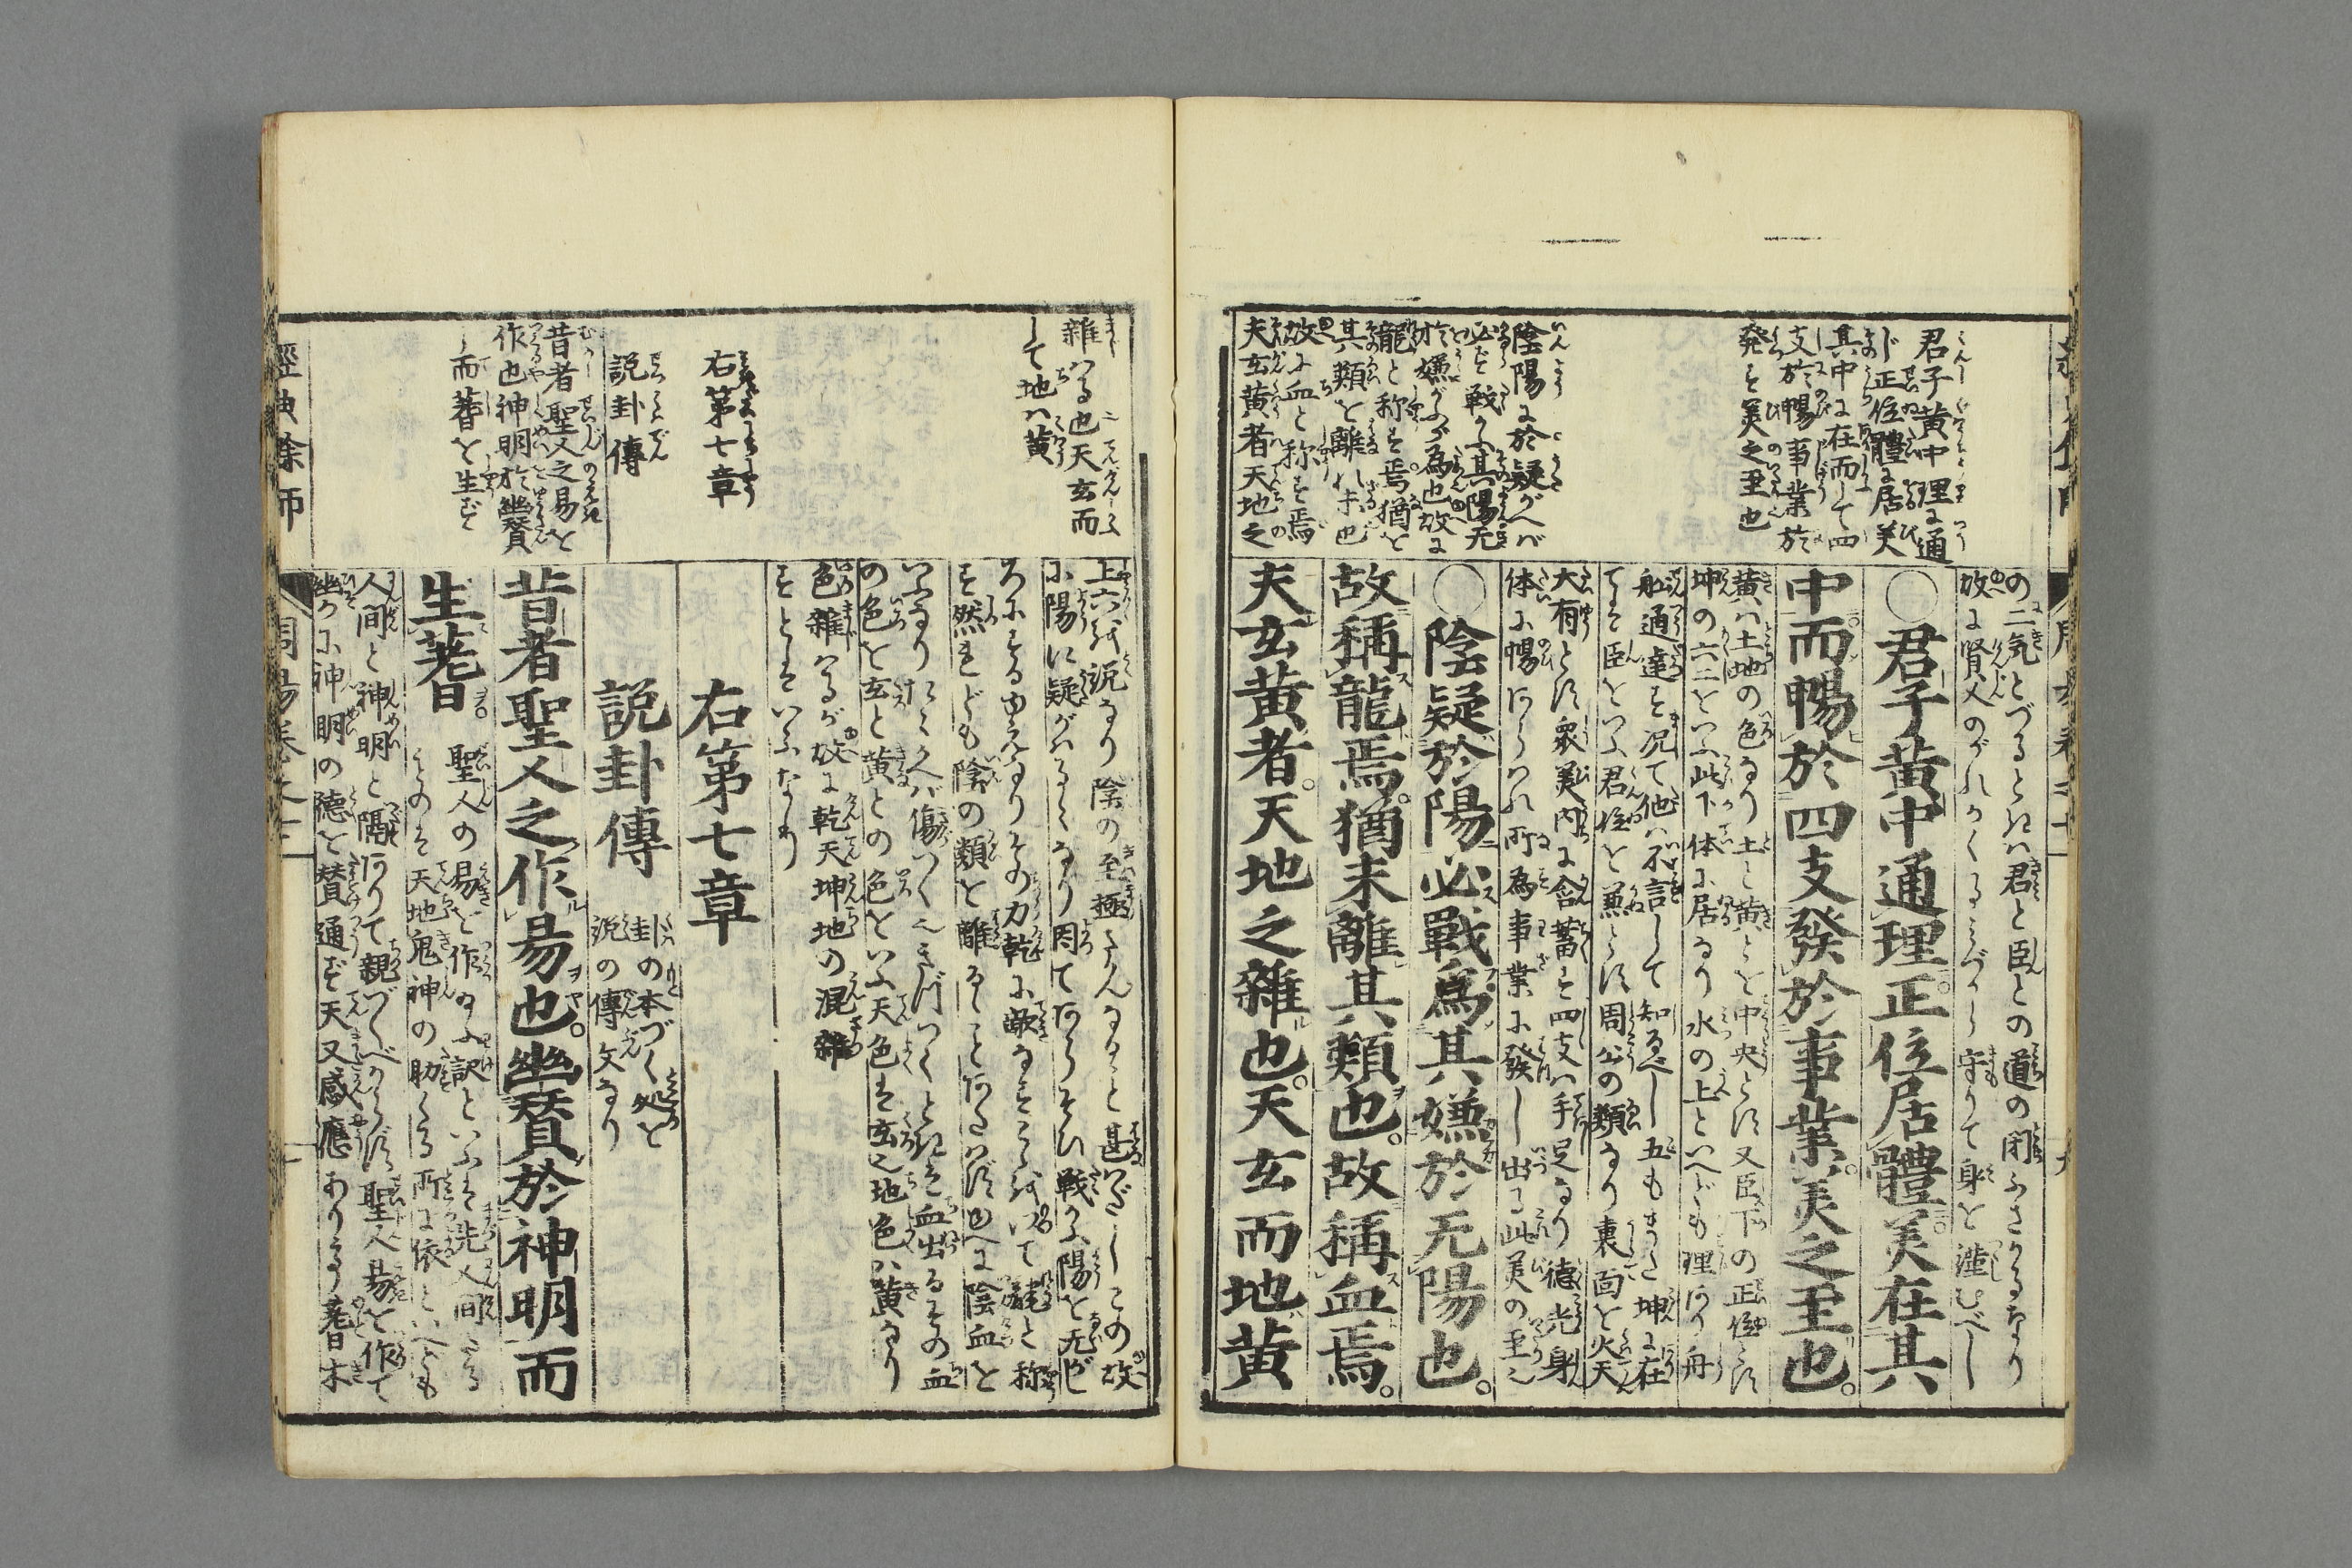 君子黄中理に通
じ正位體に居美
其中に在而して四
支於暢事業於
発す美之至也
陰陽に於疑がへば
必ず戦ふ其陽无
於嫌がふが為也故に
龍と称す焉猶を
其類を離れ未也
故に血と称す焉
夫玄黄者天地之
の二気とづるとれは君と臣との道の閉ふさがるなり
故に賢人のがれかくるみづから守りて身を謹むべし
○君子黄中通理正位居體美在其
中而暢於四支發於事業美之至也
黄は土地の色なり土と黄とを中央とす又臣下の正位とす
坤の六二をいふ此下体に居なり水の上といへども理あり舟
船通達す况て他は不言して知るべし五もまた坤に在
ては臣をいふ君位を兼るは周公の類なり裏面を火天
大有とす衆美内に含蓄す四支は手足なり徳光身
体に暢あらはれ所為事業に發し出る此美の至也
○陰疑於陽必戰爲其嫌於无陽也
故稱龍焉猶未離其類也故稱血焉
夫玄黄者天地之雜也天玄而地黄
雜れる也天玄而
して地は黄
右第七章
説卦傳
昔者聖人之易を
作也神明於幽賛
し而蓍を生ず
上六を説なり陰の至極さかんなること甚はだしこの故
に陽に疑がはるゝなり因てあらそひ戦ふ陽を无がし
ろにするゆへなりその力乾に敵なすこゝを以て龍と称
す然れども陰の類を離るゝことあたはず也へに陰血を
いふなりたゝかへば傷つくべきずつくときは血出るその血
の色を玄と黄との色をいふ天色は玄也地色は黄なり
色雜なるが故に乾天坤地の混雜
すとしはいふなり
右第七章
説卦傳 卦の本づく処を
説の傳文なり
昔者聖人之作易也幽賛於神明而
生蓍 聖人の易を作給ふ訳をいふは先人間たる
ものは天地鬼神の助くる所に依といへども
人間と神明と隔ありて親づくべからず聖人易を作て
幽かに神明の徳を賛通ず天又感應ありて蓍日木
經典餘師
周易卷之七